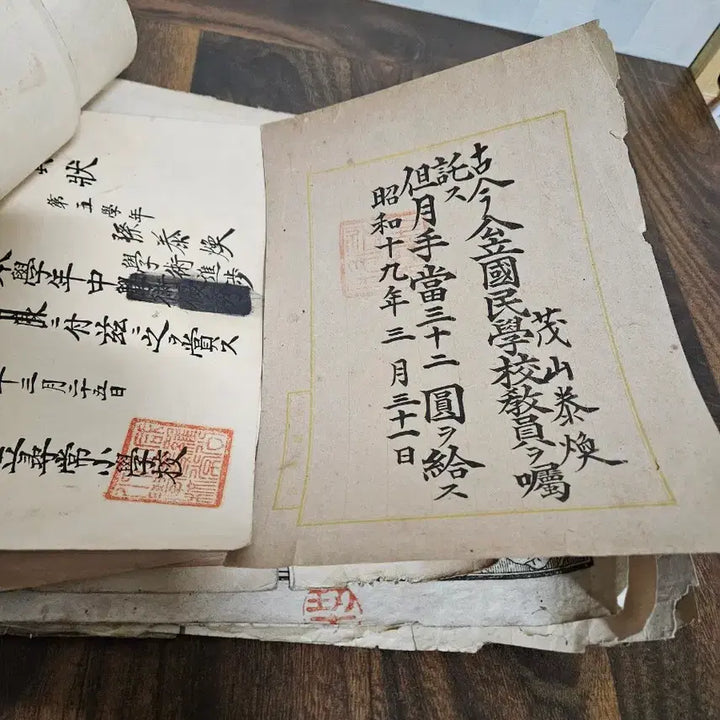 茂山泰煥
古今公立國民學校教員ヲ囑
託ス
但月手當三十二圓ヲ給ス
昭和十九年三月三十一日
状
第五學年
孫泰煥
學術進歩
學年中
ニ付茲ニ之ヲ賞ス
十三月二十五日
立尋常小學校